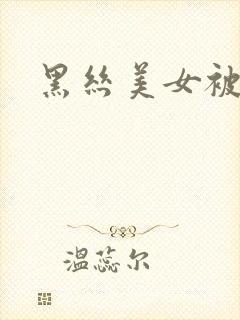 黑丝美女被
温蕊尔